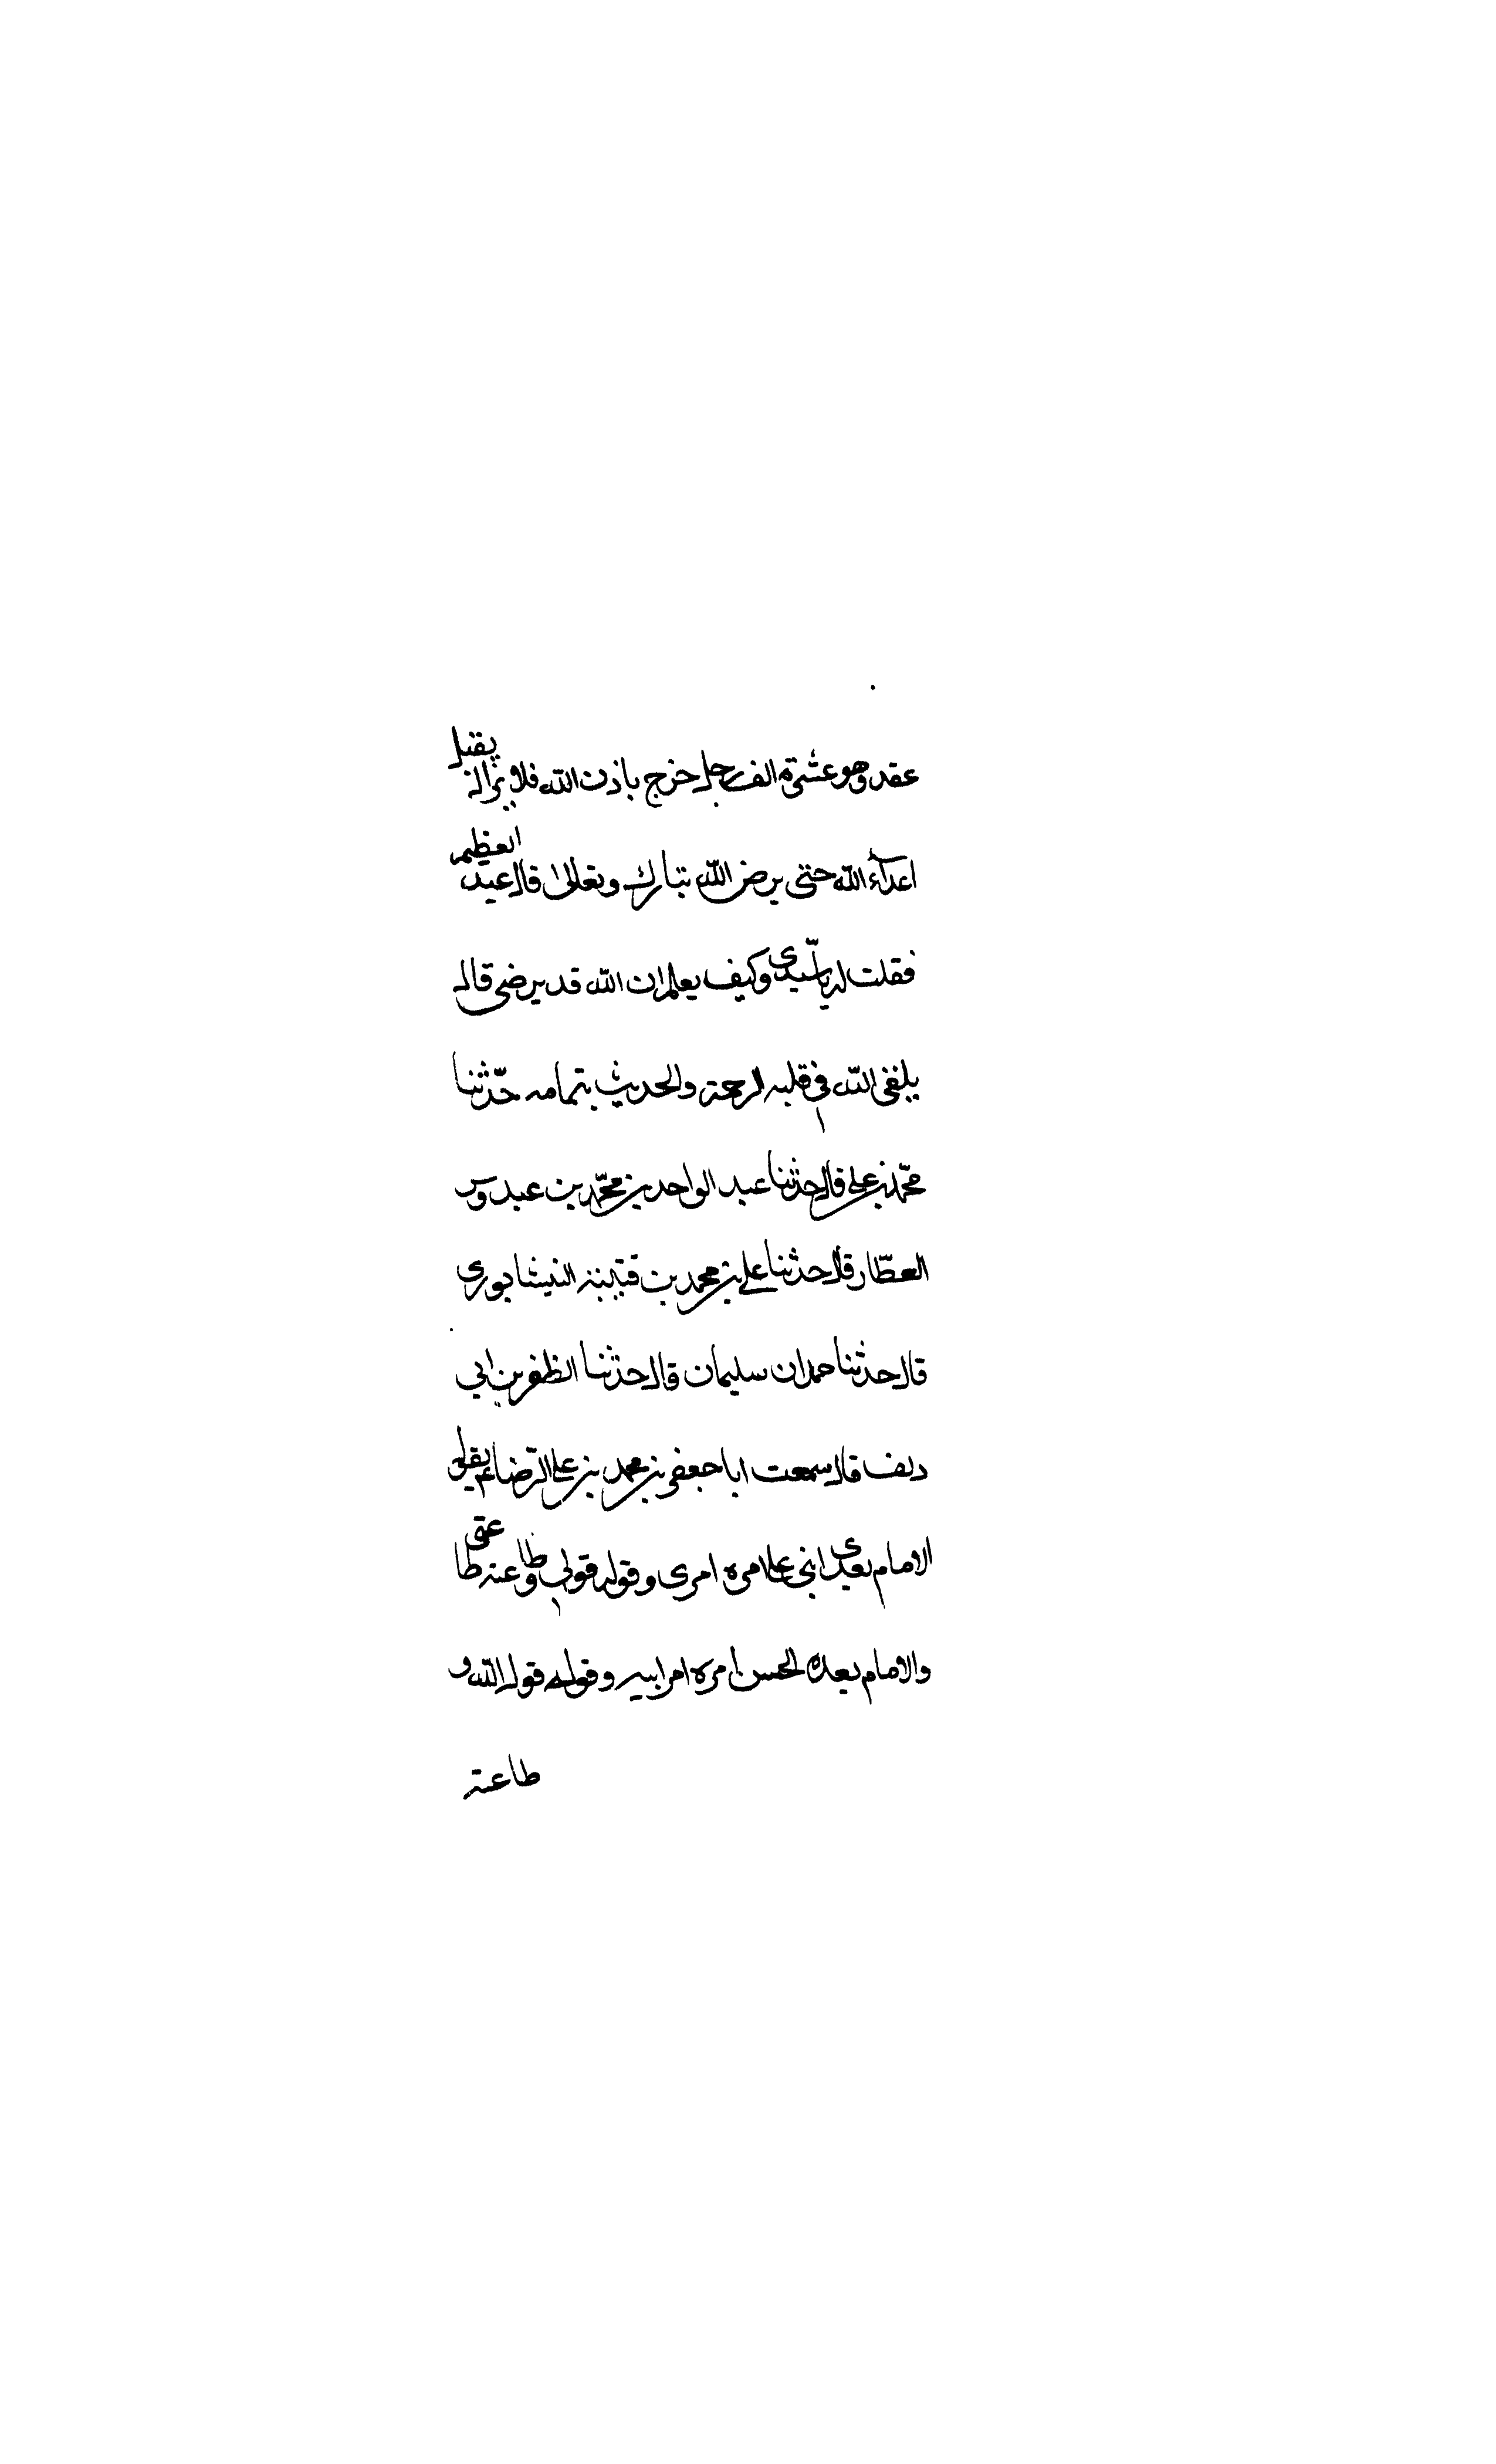 عقد وهو عشرة الف رجل خرج باذن الله فلا يزال يقتل
اعدآء الله حتى يرضى الله تبارك وتعالى قال عبد العظيم
فقلت له يا سيدى وكيف يعلم ان الله قد يرضى قال
يلقى الله فى قلبه الرحمة والحديث بتمامه حدّثنا
محمّد بن على قال حدثنا عبد الواحد بن محمّد بن عبدوس
العطّار قال حدثنا على بن محمد بن قتيبة النيشابورى
قال حدثنا حمدان سليمان قال حدثنا الظفر بن ابي
دلف قال سمعت ابا جعفر بن محمد بن على الرّضا ع يقول
الامام بعدى ابنى على امره امرى وقوله قولى وطاعته طاعتى
والامام بعده الحسن امره امر ابيه وقوله قول الله و
طاعته